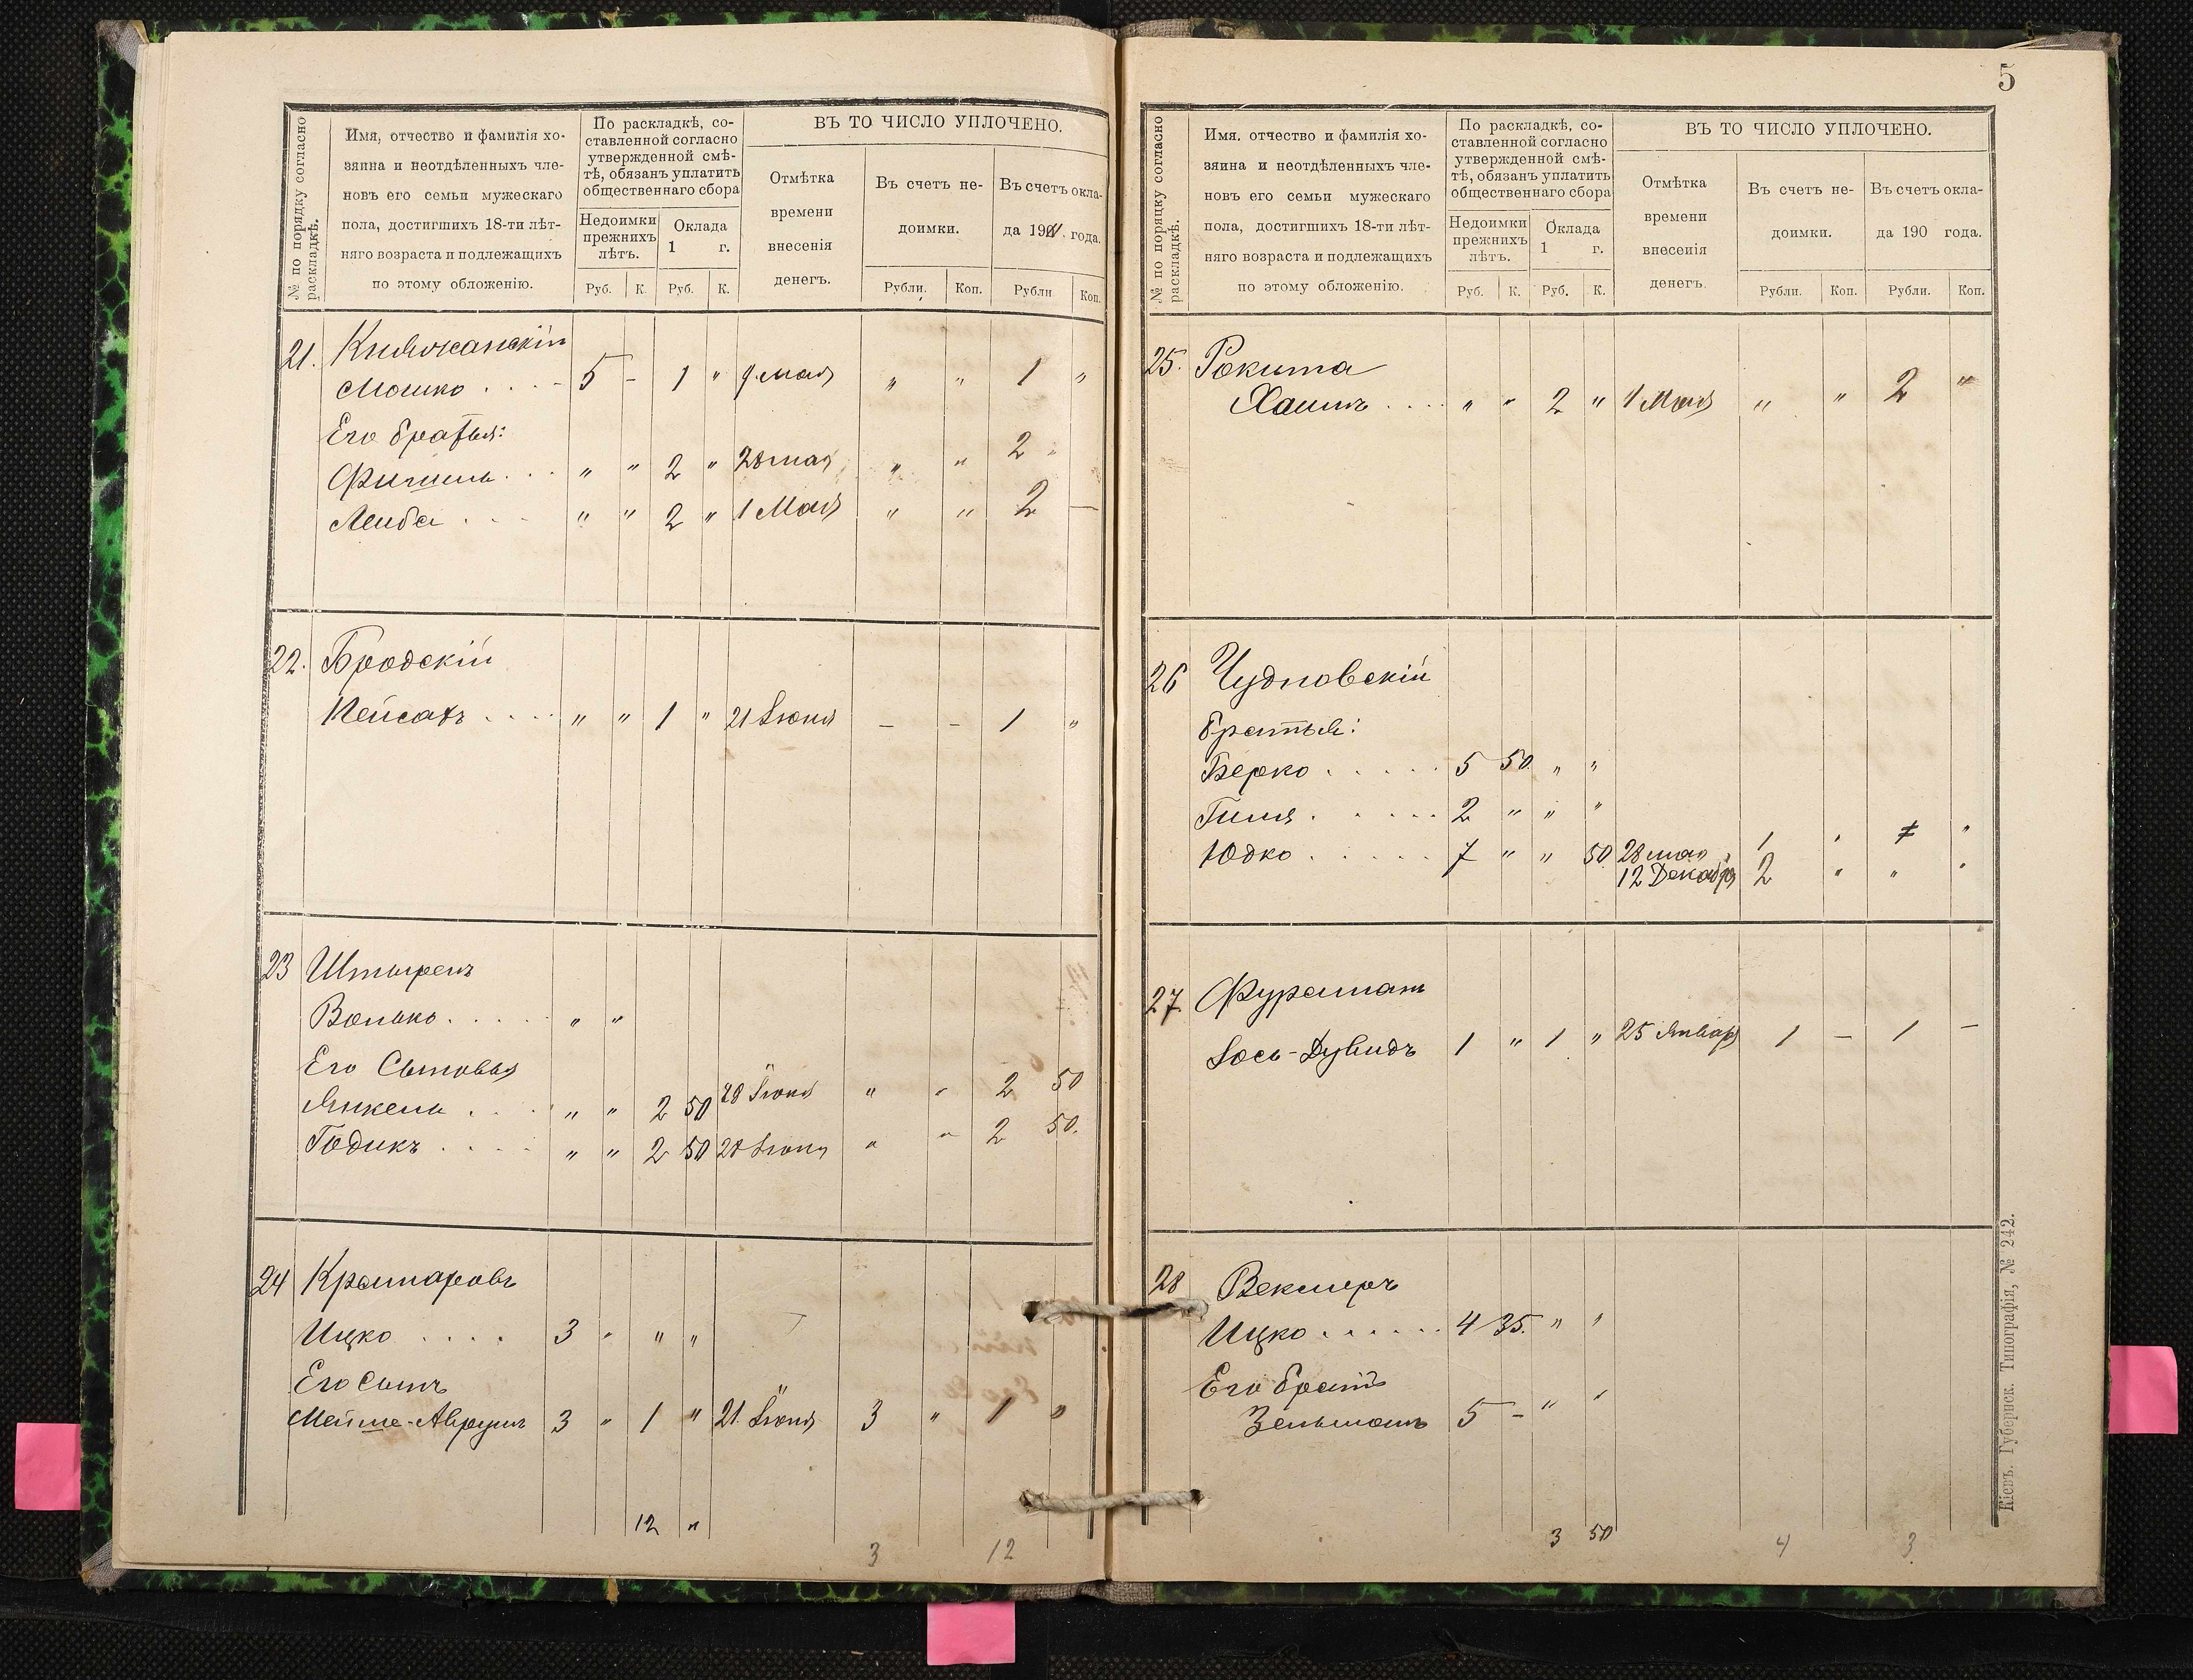 № по порядку согласно раскладкѣ.
Имя, отчество и фамилія хо-
зяина и неотдѣленныхъ чле-
новъ его семьи мужескаго
пола, достигшихъ 18-ти лѣт-
няго возраста и подлежащихъ
по этому обложенію.
По раскладкѣ, со-
ставленной согласно
утвержденной смѣ-
тѣ, обязанъ уплатить
общественнаго сбора
Недоимки прежнихъ лѣтъ.
Оклада 1 г.
Руб. К. Руб. К.
ВЪ ТО ЧИСЛО УПЛОЧЕНО.
Отмѣтка времени внесенія денегъ.
Въ счетъ не-
доимки.
Рубли. Коп.
Въ счетъ окла-
да 1901. года.
Рубли Коп.
21. Кнывжанскій
Мошко . . . . 5 - 1 " 9 мая " " 1 "
Его братья:
Фишель . . . " " 2 " 28 мая " " 2 "
Лейба . . . " " 2 " 1 Мая " " 2 —
22. Бродскій
Пейсахъ . . . . " " 1 " 21 Іюня - - 1 "
23 Штыренъ
Волько . . . . . " "
Его Сыновья
Янкель . . . " " 2 50 28 Іюня " " 2 50
Годикъ . . . . " " 2 50 28 Іюня " " 2 50.
24 Крамаровъ
Ицко . . . . 3 " " "
Его сынъ
Мейше-Аврумъ 3 " 1 " 21 Іюня 3 " 1 "
12 "
3 12
5
№ по порядку согласно раскладкѣ.
Имя. отчество и фамилія хо-
зяина и неотдѣленныхъ чле-
новъ его семьи мужескаго
пола, достигшихъ 18-ти лѣт-
няго возраста и подлежащихъ
по этому обложенію.
По раскладкѣ, со-
ставленной согласно
утвержденной смѣ-
тѣ, обязанъ уплатить
общественнаго сбора
Недоимки прежнихъ лѣтъ.
Оклада 1 г.
Руб. К. Руб. К.
ВЪ ТО ЧИСЛО УПЛОЧЕНО.
Отмѣтка времени внесенія денегъ.
Въ счетъ не-
доимки.
Рубли. Коп.
Въ счетъ окла-
да 190 года.
Рубли. Коп.
25. Рокита
Хаимъ . . . . " " 2 " 1 Мая " " 2 "
26 Чудновскій
братья:
Берко . . . . . 5 50 " "
Гиля . . . . . 2 " " "
Юдко . . . . . 7 " " 50 28 мая 1 " "
12 Декабря 2 " " "
27 Фурманъ
Іось-Дувидъ 1 " 1 " 25 Января 1 — 1 —
28 Векслеръ
Ицко . . . . . . 4 35. " "
Его братъ
Зельманъ 5 - " "
3 50
4 3
Кіевъ. Губернск. Типографія, № 242.